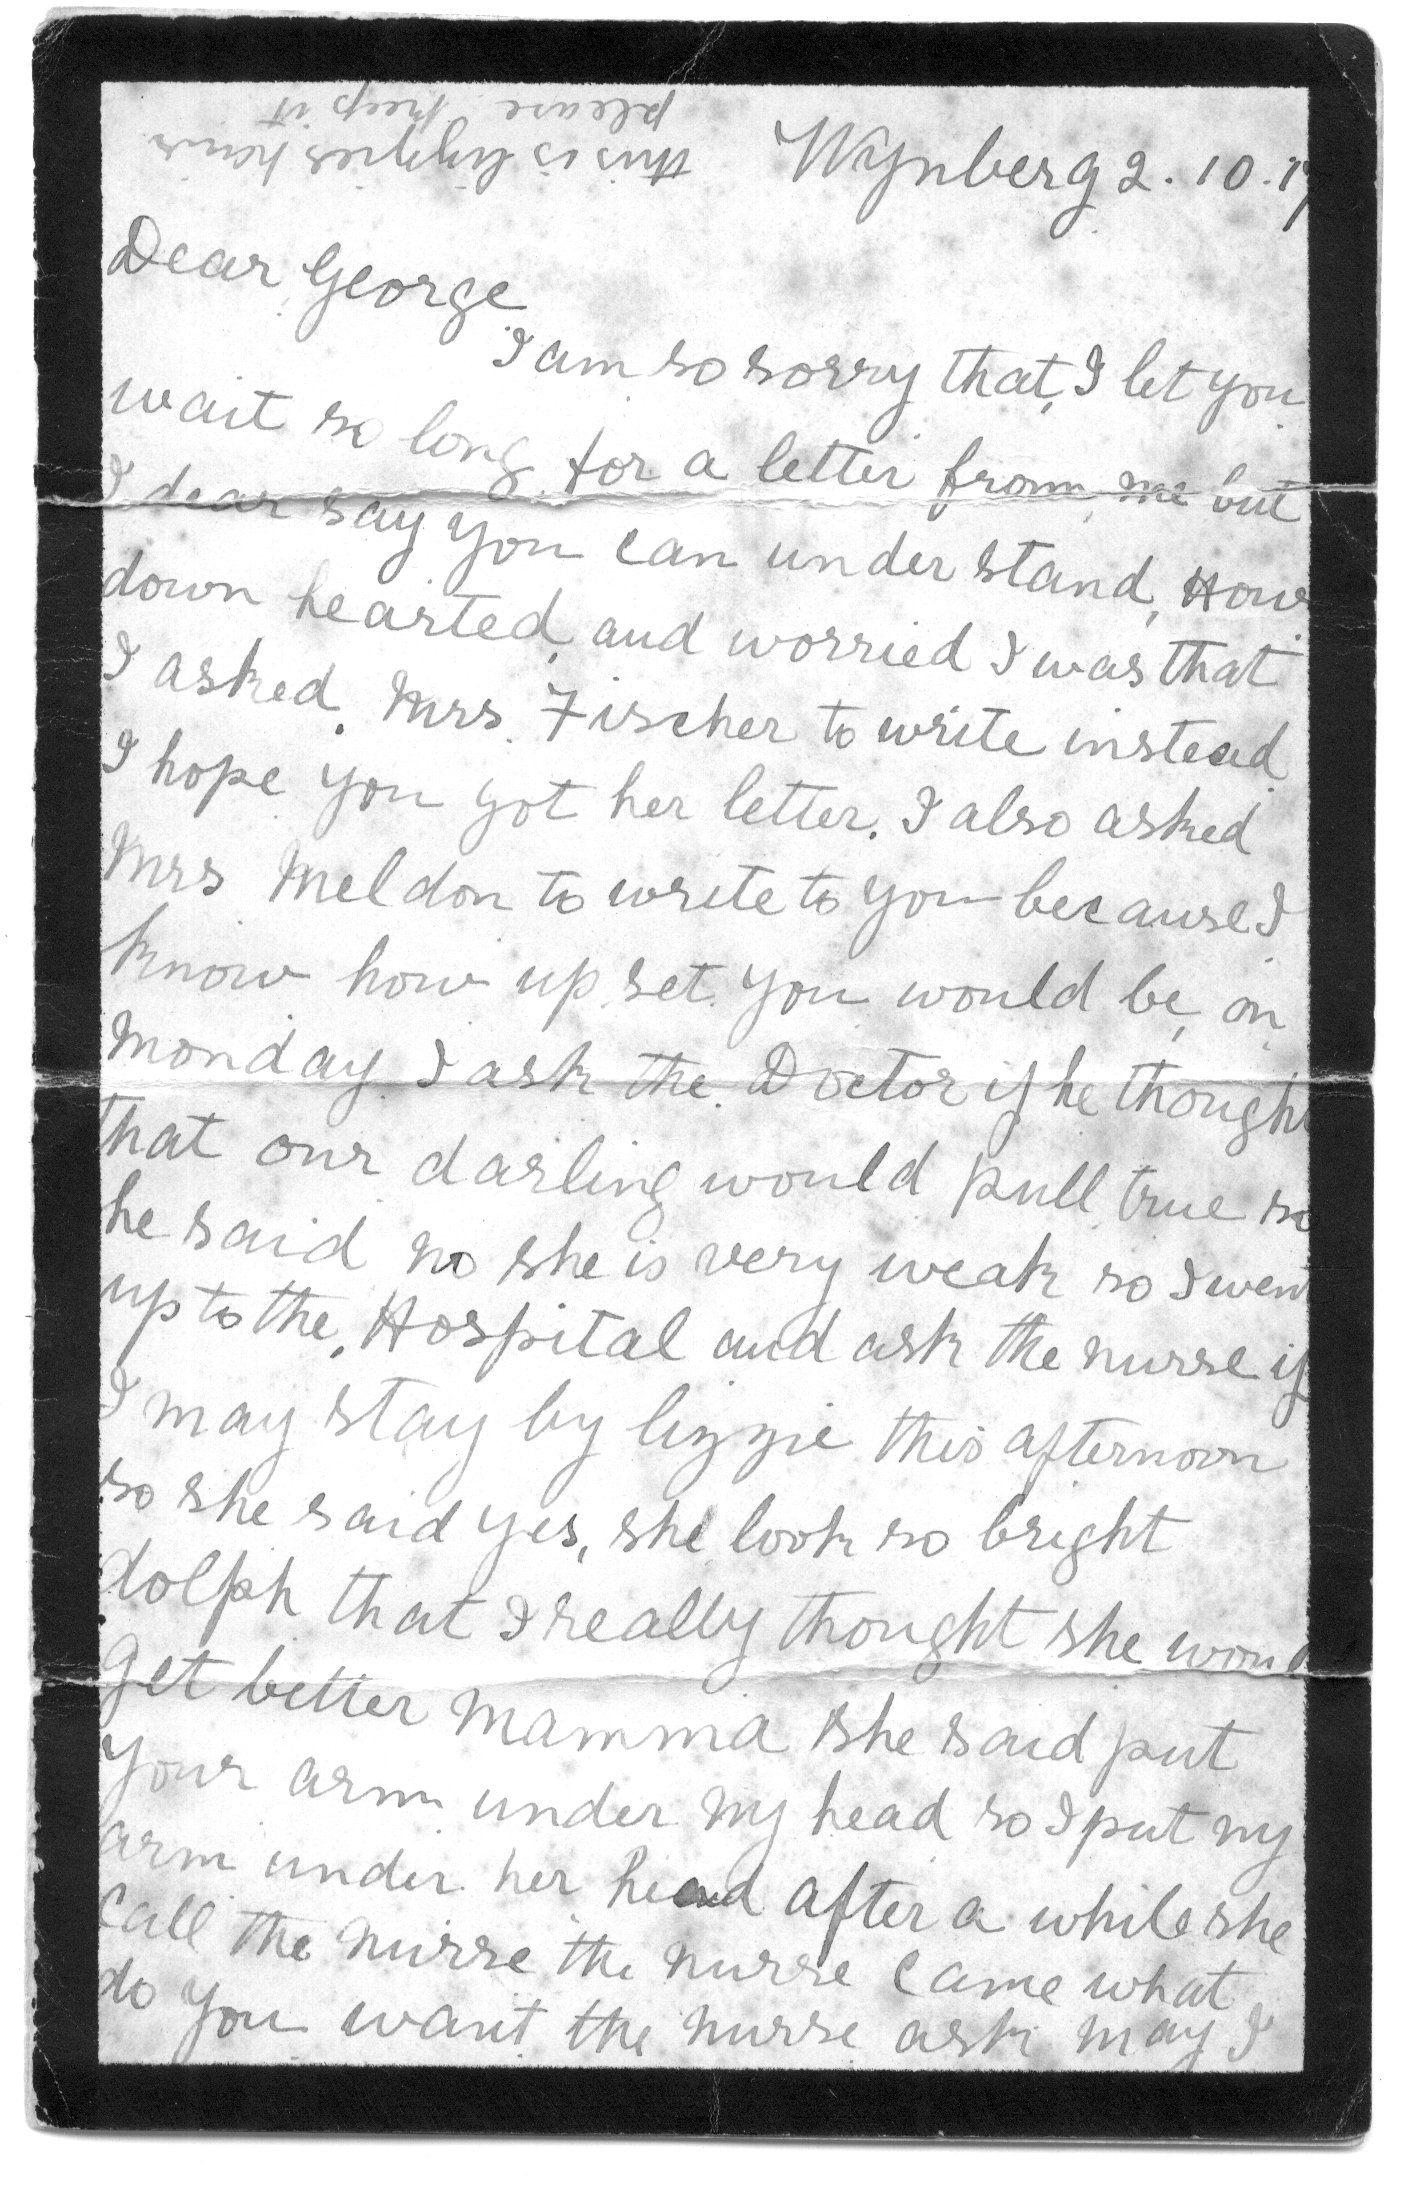 this is lizzies hair
please keep it
Wynberg 2.10.17
Dear George
I am so sorry that, I let you
wait so long for a letter from me but
I dear say you can under stand, How
down hearted and worried I was that
I asked. Mrs. Fischer to write instead
I hope you got her letter. I also asked
Mrs Meldon to write to you because I
know how up set you would be, on
Monday I ask the Doctor if he though
that our darling would pull true so
he said no she is very weak so I went
up to the, Hospital and ask the nurse if
I may stay by lizzie this afternoon
so she said yes, she look so bright
dolph that I really thought she would
get better mamma she said put
your arm under my head so I put my
arm under her head after a while she
call the nurse the nurse came what
do you want the nurse ask may I